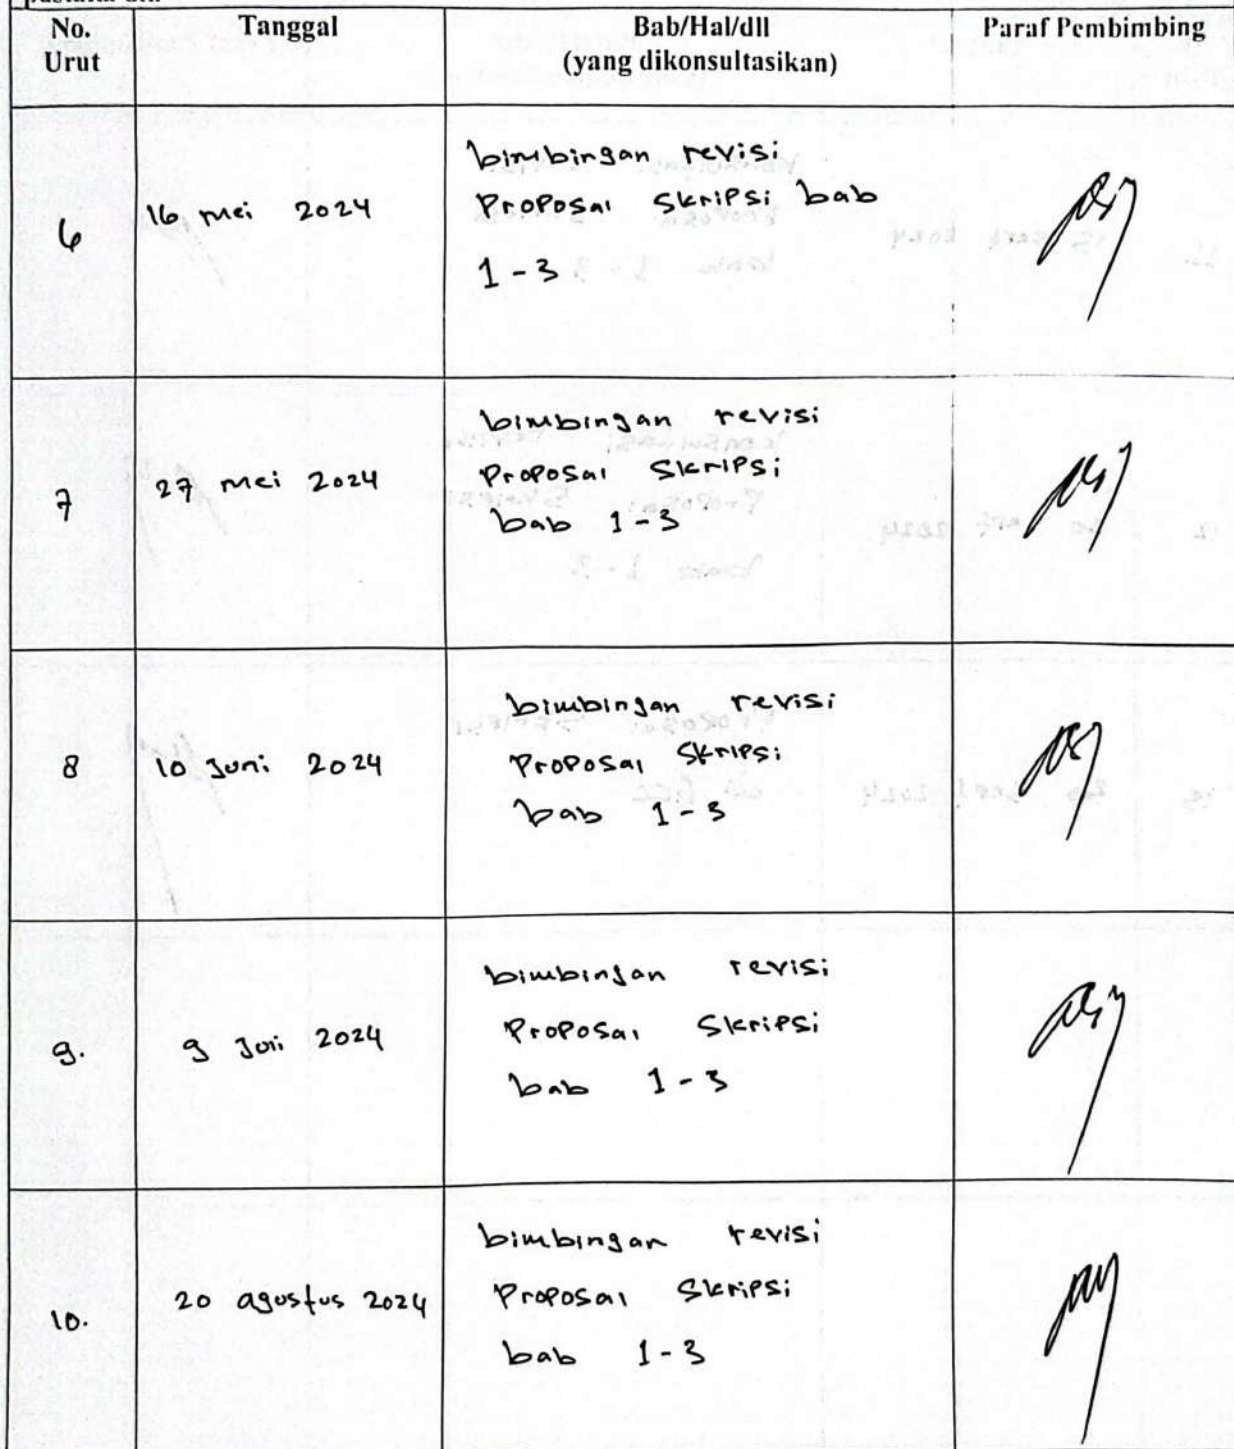 No.
Urut
Tanggal
Bab/Hal/dll
(yang dikonsultasikan)
Paraf Pembimbing
6
16 mei 2024
bimbingan revisi
Proposal Skripsi bab
1 - 3
7
27 mei 2024
bimbingan revisi
Proposal Skripsi
bab 1 - 3
8
10 Juni 2024
bimbingan revisi
Proposal Skripsi
bab 1 - 3
9.
9 Juli 2024
bimbingan revisi
Proposal Skripsi
bab 1 - 3
10.
20 agustus 2024
bimbingan revisi
Proposal Skripsi
bab 1 - 3